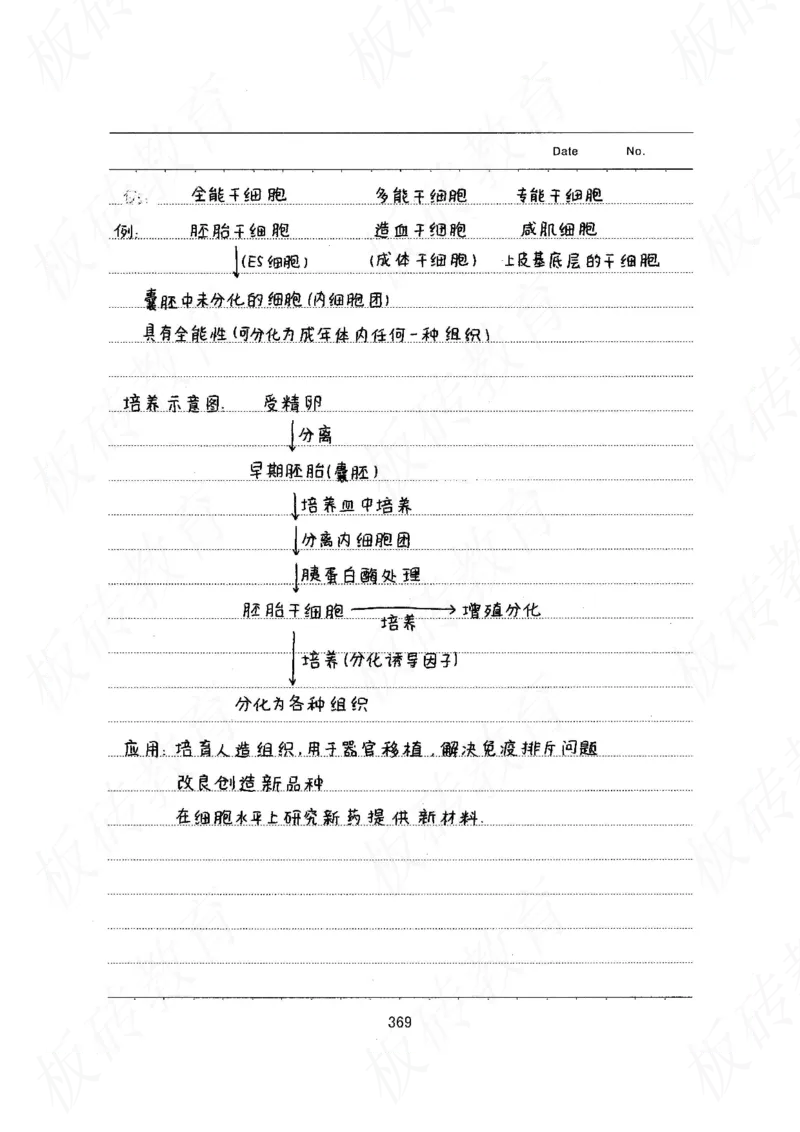 Date No.
例: 全能干细胞 多能干细胞 专能干细胞
例: 胚胎干细胞 造血干细胞 成肌细胞
(ES细胞) (成体干细胞) 上皮基底层的干细胞
囊胚中未分化的细胞(内细胞团)
具有全能性(可分化为成年体内任何一种组织)
培养示意图: 受精卵
分离
早期胚胎(囊胚)
培养皿中培养
分离内细胞团
胰蛋白酶处理
胚胎干细胞 培养 增殖分化
培养(分化诱导因子)
分化为各种组织
应用: 培育人造组织,用于器官移植,解决免疫排斥问题
改良创造新品种
在细胞水平上研究新药提供新材料.
369
板砖教育